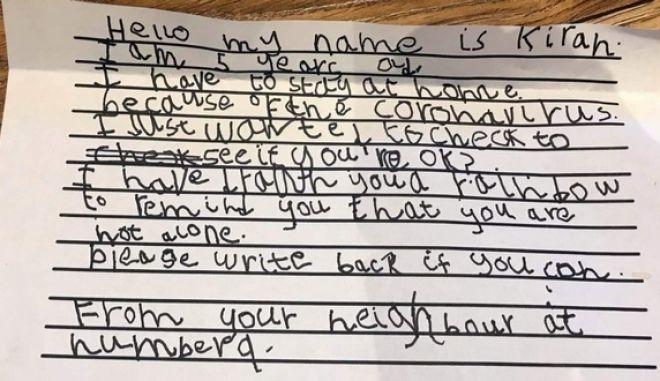 Hello my name is Kiran.
I am 5 years old
I have to stay at home
because of the coronavirus.
I just wanted to check to
see if you're OK?
I have drawn you a rainbow
to remind you that you are
not alone.
please write back if you can.
From your neighbour at
number 9.